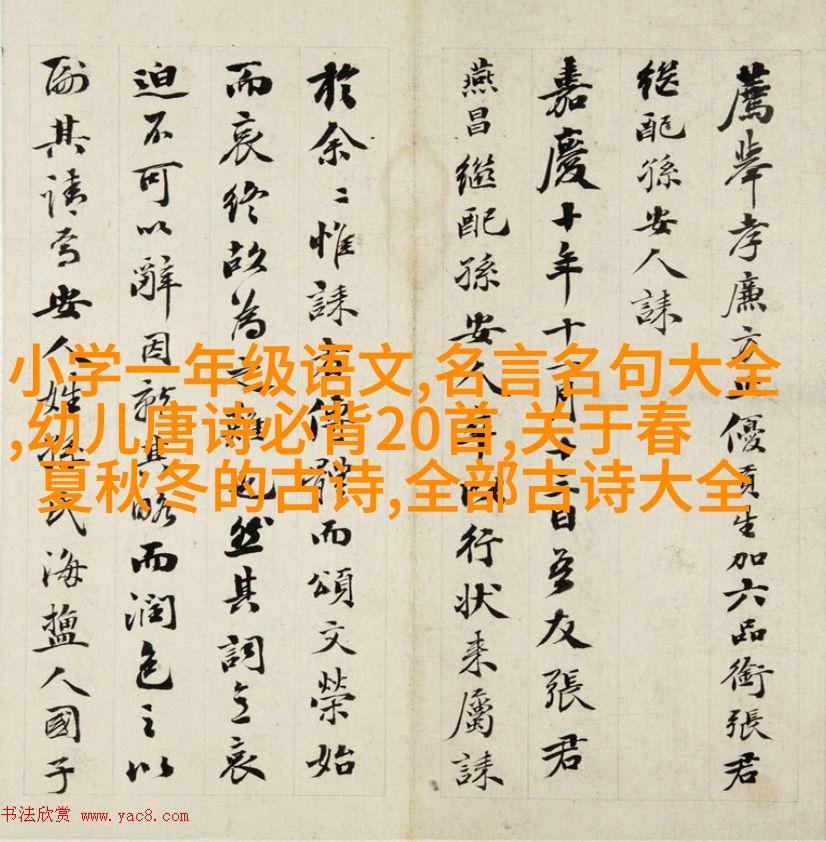 薦舉孝廉方正優貢生加六品銜張君
継配孫安人誄
嘉慶十年十一月十日吾友張君
燕昌継配孫安人行状来屬誄
於余〻惟誄傳體而頌文榮始
而哀终故為之難也然其詞哀
迫不可以辭因就其略而潤色之以
副其請焉安人姓孫氏海鹽人國子
小学一年级语文,名言名句大全
,幼儿唐诗必背20首,关于春
夏秋冬的古诗,全部古诗大全
书法欣赏 www.yac8.com